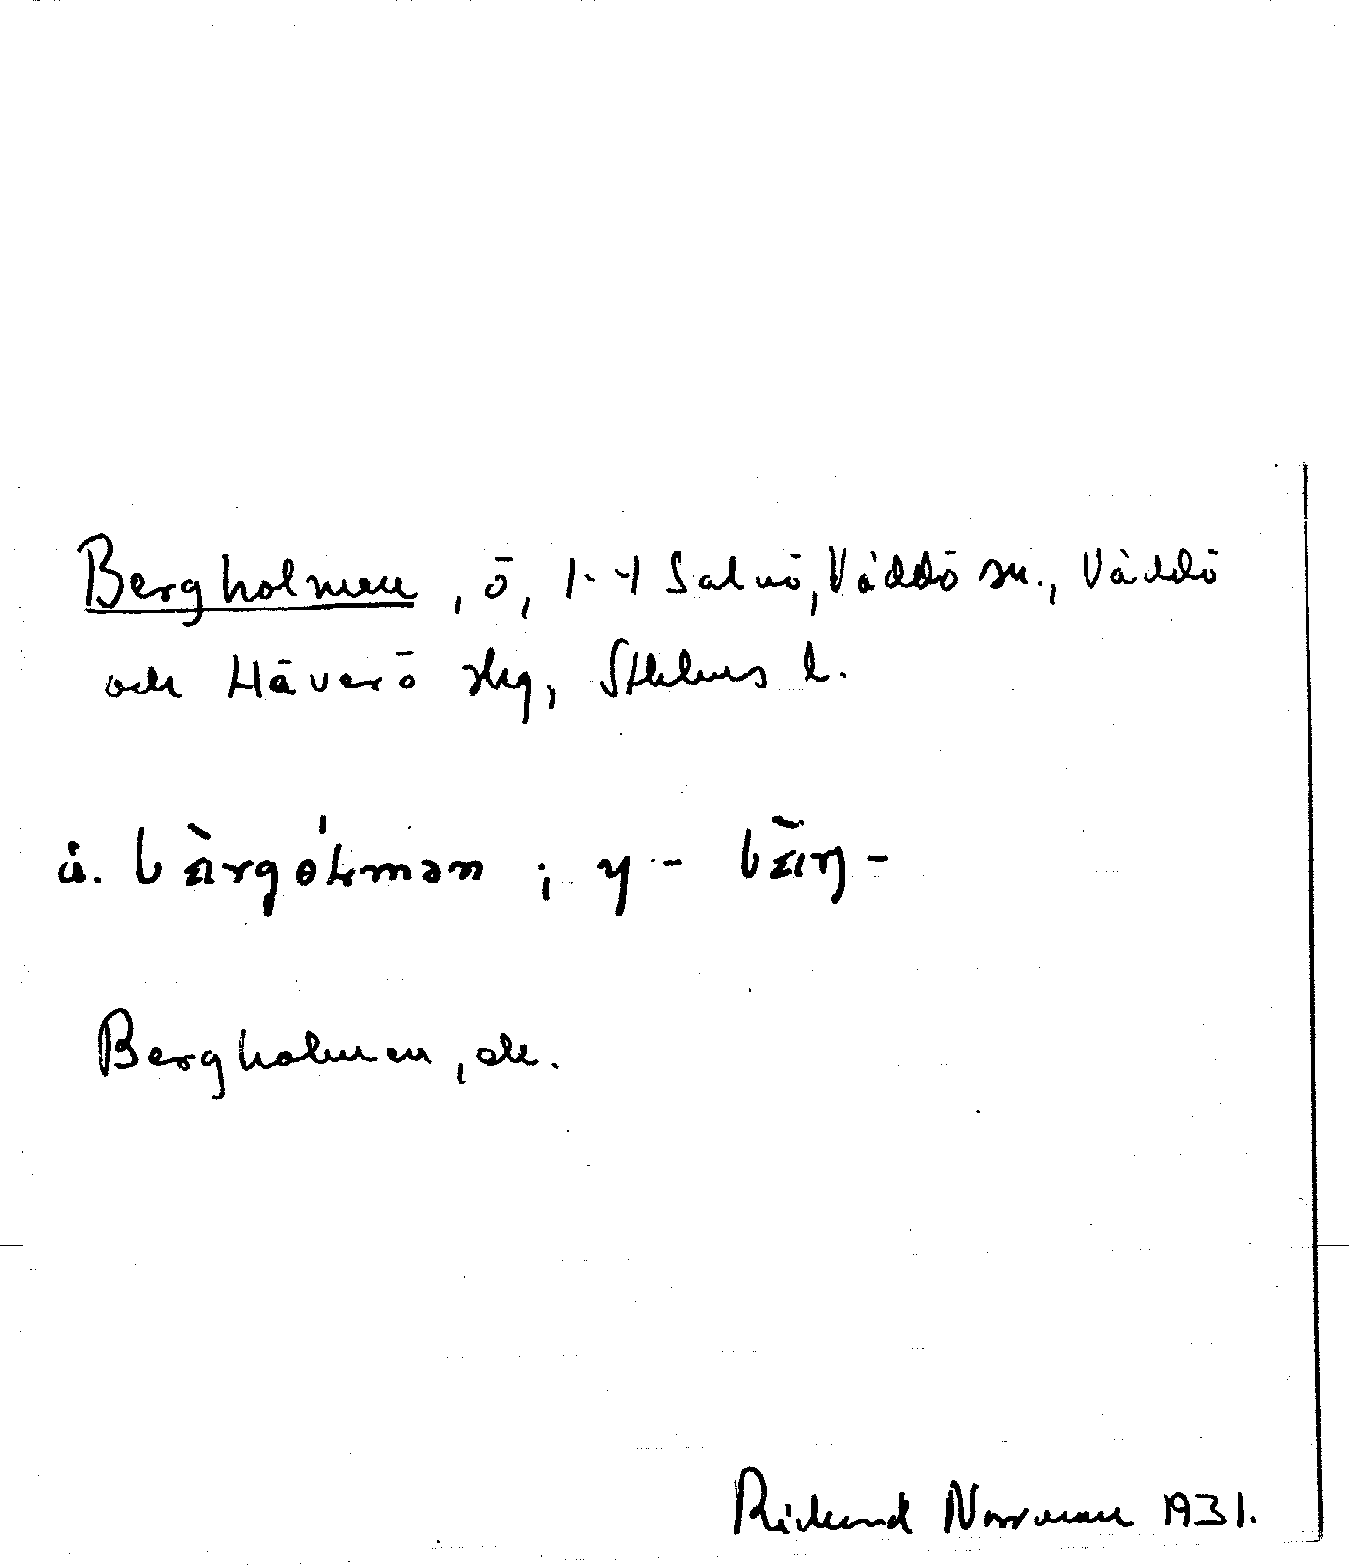 Bergholmen, ö, 1-4 Salnö, Väddö sn., Väddö
och Häverö skg, Sthlms l.
ä. bæ̀rgóɫmən ; y - bæ̀rj -
Bergholmen, ek.
Rickard Norrman 1931.